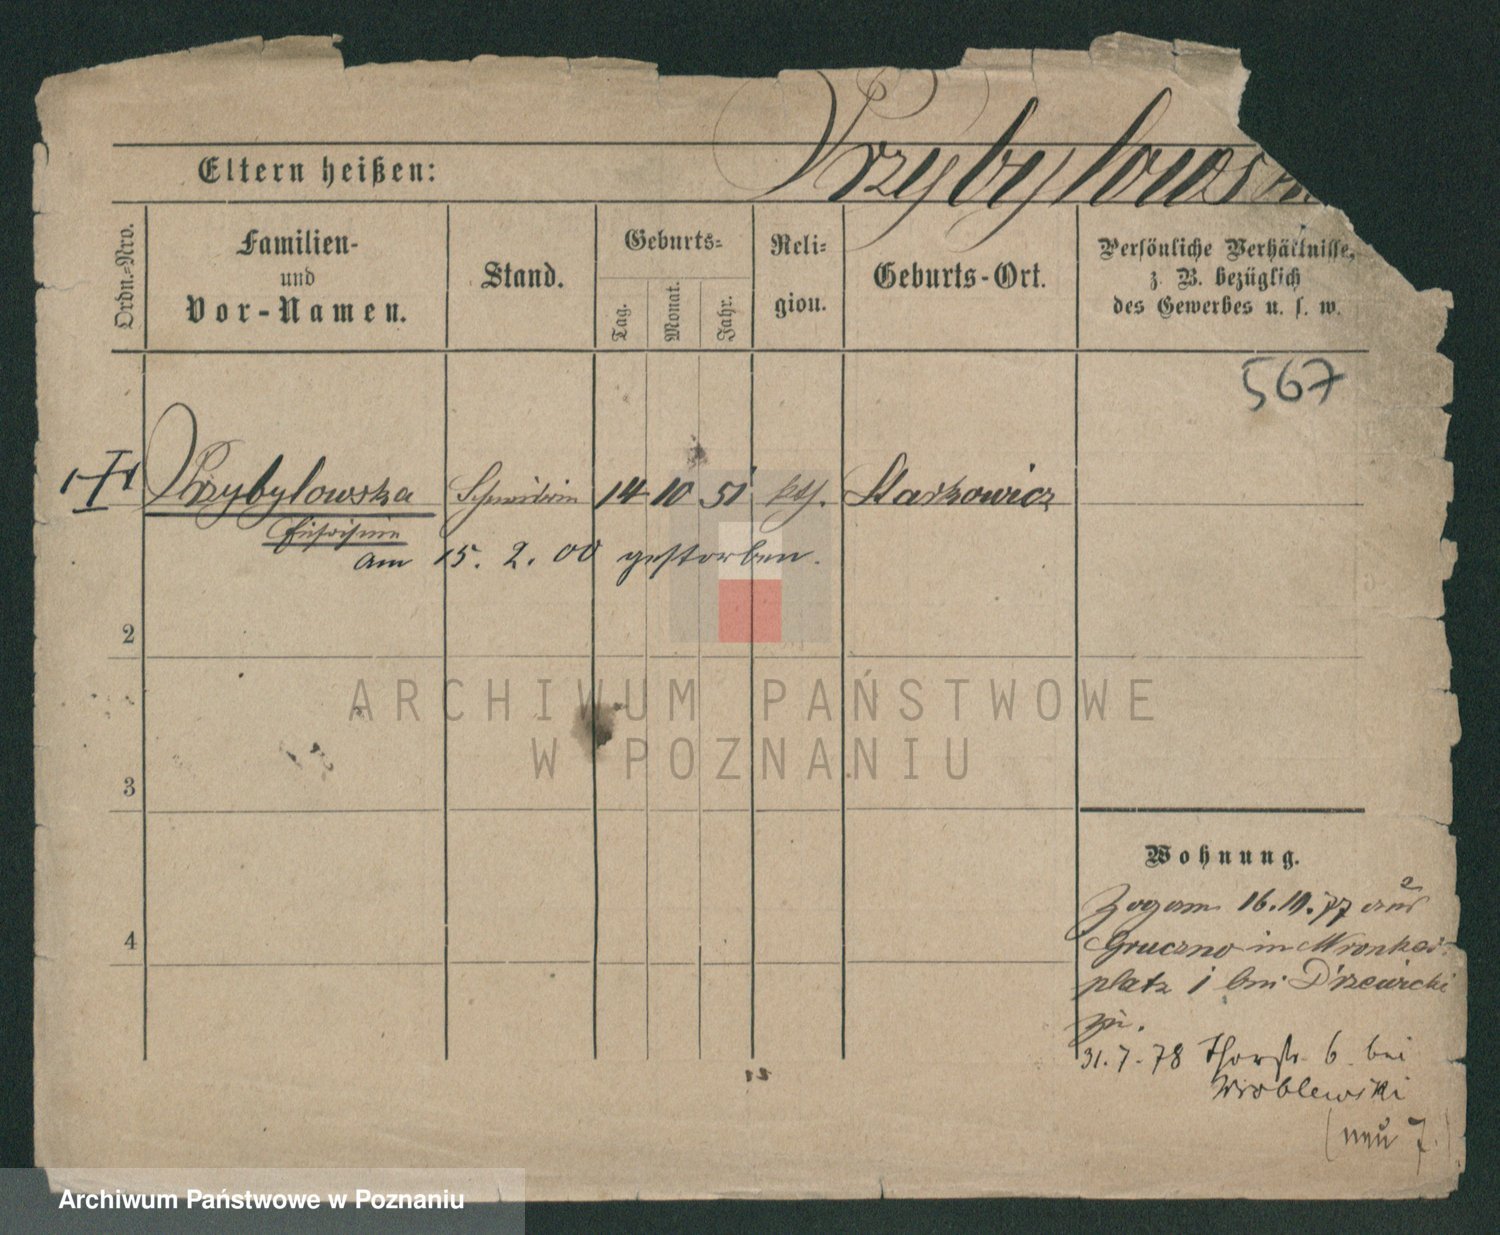 Przybylows
Eltern heißen:
Ordn.-Nro.
Familien-
und
Vor-Namen.
Stand.
Geburts-
Tag.
Monat.
Jahr.
Reli-
gion.
Geburts-Ort.
Persönliche Verhältnisse,
z. B. bezüglich
des Gewerbes u. s. w.
567
Przybylowska 14 10 51 kth.
am 15. 2. 00 gestorben.
2
3
4
Wohnung.
Zog am 16.10.77 aus
Gruczno in Wronker-
platz 1 bei Drzewicki
zu.
31.7.78 Thorstr. 6 bei
Wroblewski
(neu 7.)
ARCHIWUM PAŃSTWOWE
W POZNANIU
Archiwum Państwowe w Poznaniu